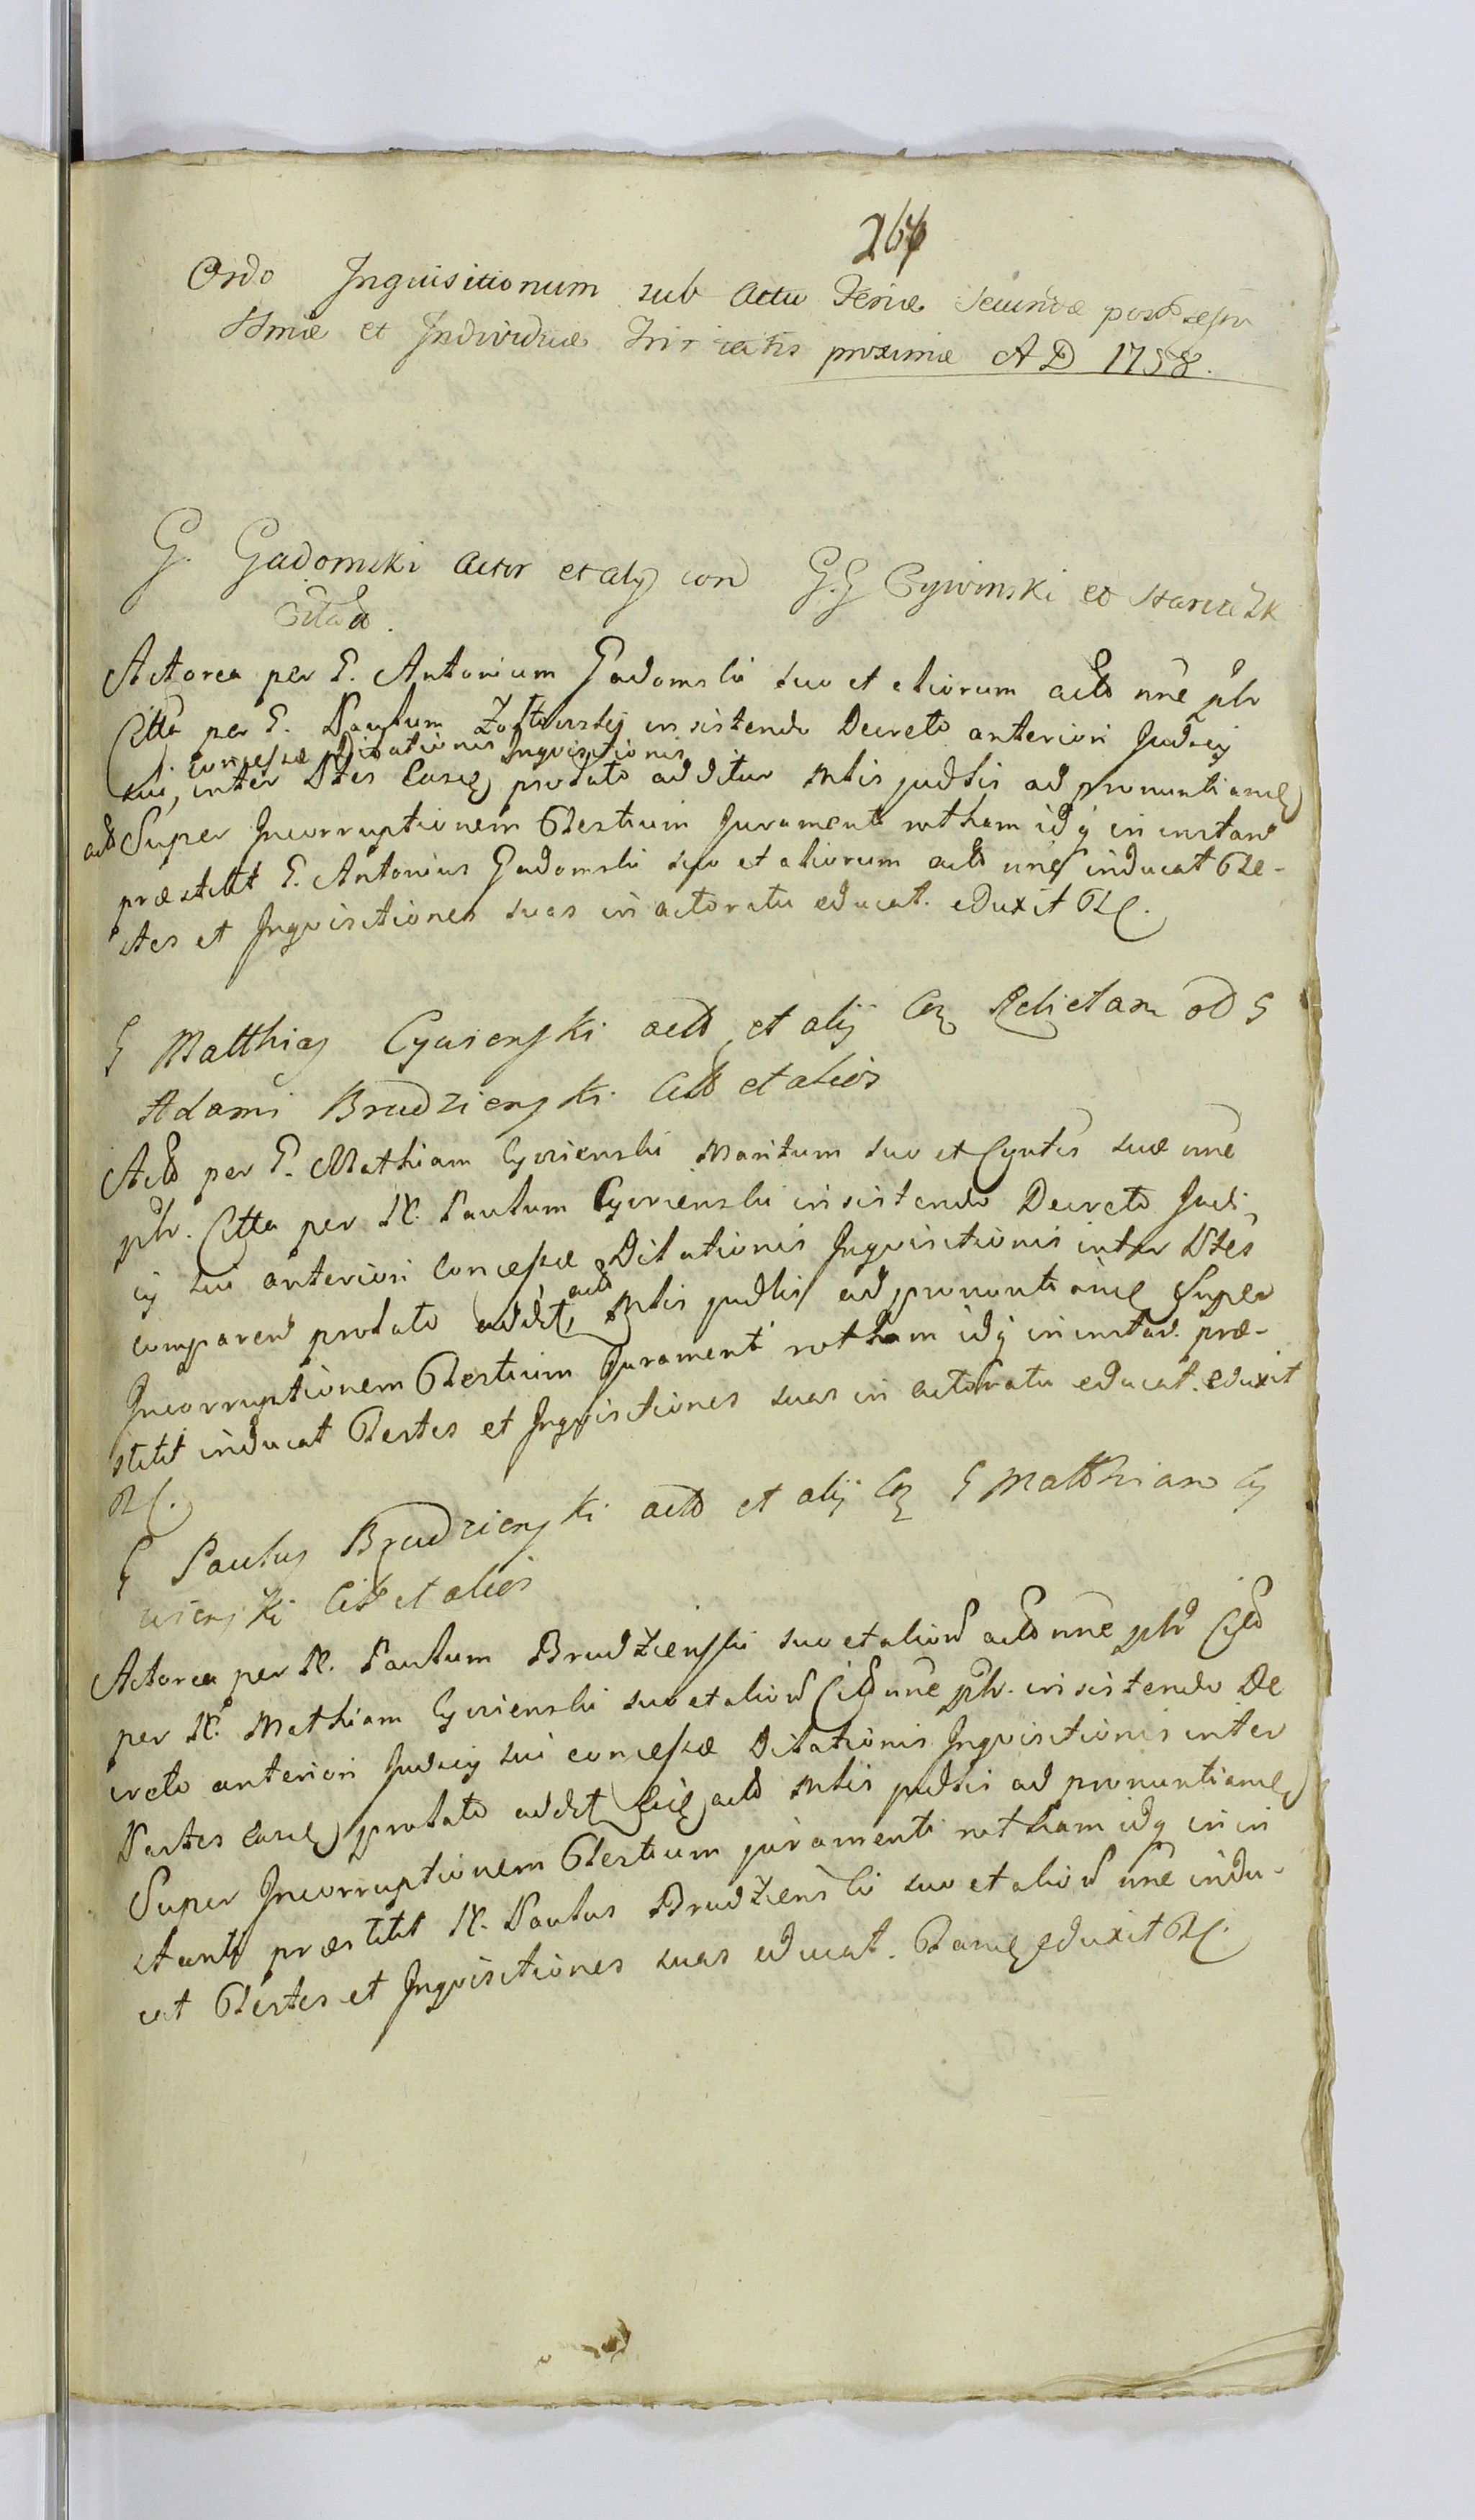 264
Ordo Inquisitionum sub Actu Feriæ Secundæ post festu
SSmæ et Individuæ Trinitatis proximæ AD 1758.
G. Gadomski Actor et alÿ con G.G Cywinski et
Citta.
Actorea per G. Antonium Gadomski suo et aliorum acto nne plr
Citta per G. Paulum insistendo Decreto anteriori Judicÿ
concessæ Dilationis Inquisitionis
sui, inter Ptes probato additur Mtis judtis ad pronuntiand
acto Super Incorruptionem Testium Juramenti rotham idq in instanti
præstitit G. Antonius Gadomski suo et aliorum acto nne inducat Te-
stes et Inquisitiones suas in actoratu educat. eduxit
G Matthias Cywienski acto et alÿ Relictam od G
Adami Brudzienski Citto et alios
Acto per G. Mathiam Cywienski Maritum suo et Cgntis suæ nne
plr. Citta per N. Paulum Cywienski insistendo Decreto Judi
cÿ sui anteriori concessæ Dilationis Inquisitionis inter Ptes
acto
comparen probato addit, Mtis judtis ad pronuntiand Super
Incorruptionem Testium Jurament rotham idq in instan. præ-
stitit inducat Testes et Inquisitiones suas in actoratu educat. eduxit
G Paulus Brudzienski acto et alÿ G Matthiam Cy
wienski Citt et alios
Actorea per N. Paulum Brudzienski suo et alior acto nne plr Citto
per N. Mathiam Cywienski suo et alior Citto nne plr. insistendo De
creto anteriori Judicÿ sui concessæ Dilationis Inquisitionis inter
Partes probato addit acto Mtis judtis ad pronuntiand
Super Incorruptionem Testium juramenti rotham idq in in
stanti præstitit N. Paulus Brudzienski suo et alior nne indu-
cat Testes et Inquisitiones suas educat. eduxit